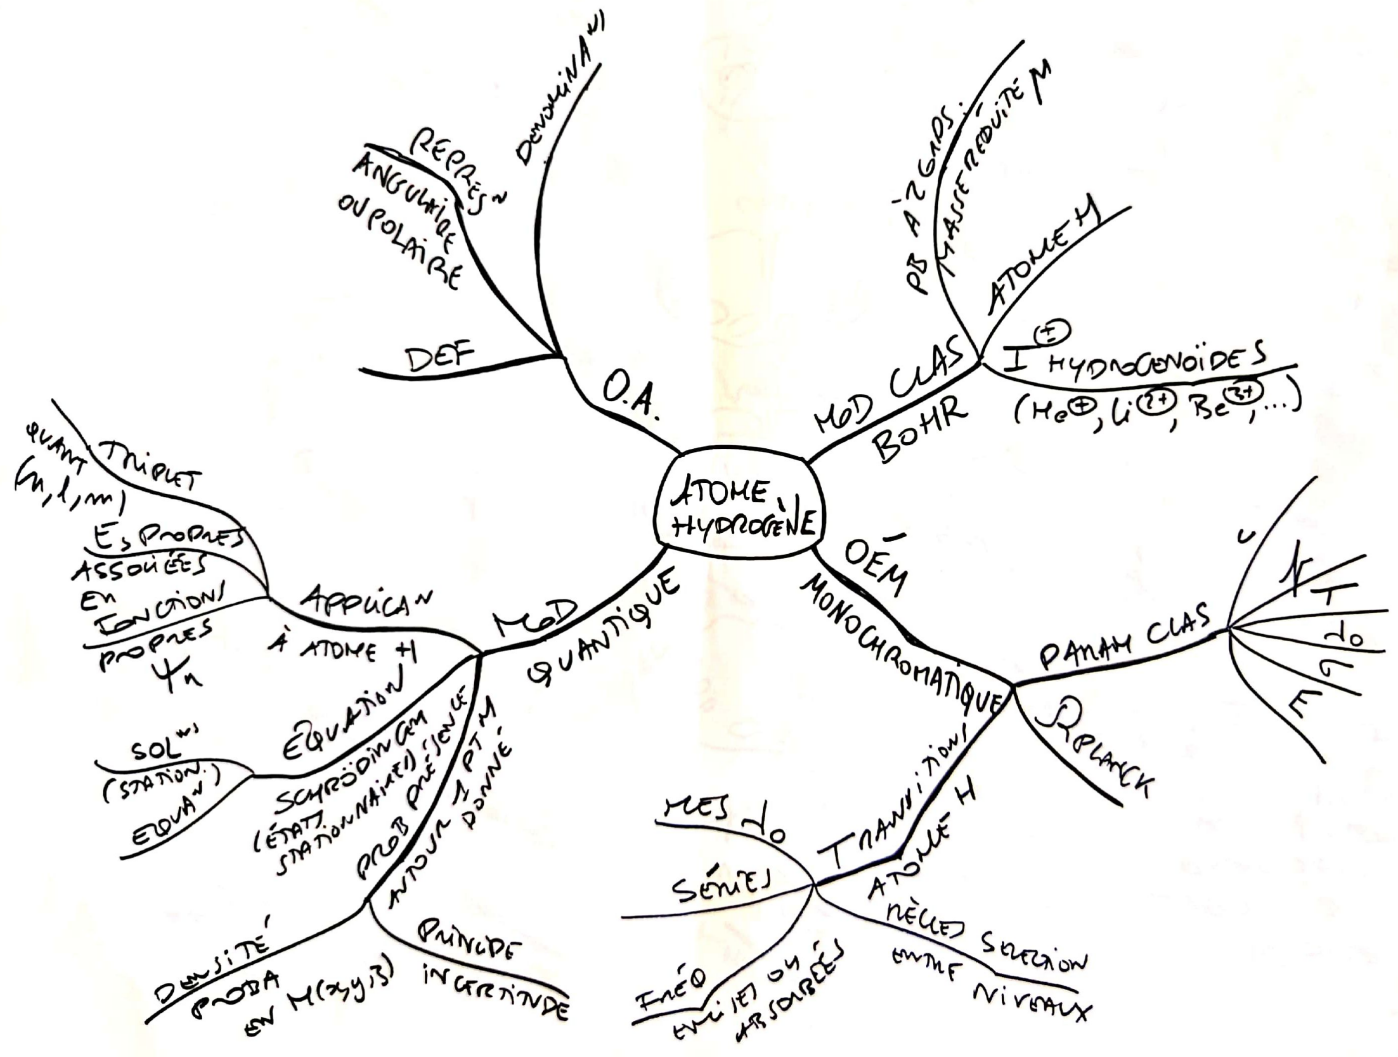 ATOME
HYDROGÈNE
MOD CLAS
BOHR
PB À 2 CORPS.
MASSE RÉDUITE M
ATOME H
I⊕ HYDROGENOÏDES
(He⊕, Li²⁺, Be³⁺, ...)
OÉM
MONOCHROMATIQUE
PARAM CLAS
υ
N
T
λ₀
σ
E
R PLANCK
TRANSITIONS
ATOME H
MES λ₀
SÉRIES
FRÉQ
EMISES OU
ABSORBÉES
RÈGLES SELECTION
ENTRE NIVEAUX
MOD
QUANTIQUE
APPLICAN
À ATOME H
TRIPLET
QUANT
(n, l, m)
Es PROPRES
ASSOCIÉES
EN
FONCTIONS
PROPRES
Ψn
EQUATION
SCHRÖDINGER
(ÉTATS
STATIONNAIRES)
SOLⁿˢ
(STATION.)
EQUAN
PROB PRÉSENCE
AUTOUR 1 PT M
DONNÉ
DENSITÉ
PROBA
EN M(x,y,z)
PRINCIPE
INCERTITUDE
O.A.
DEF
REPRESN
ANGULAIRE
OU POLAIRE
DENOMINAN